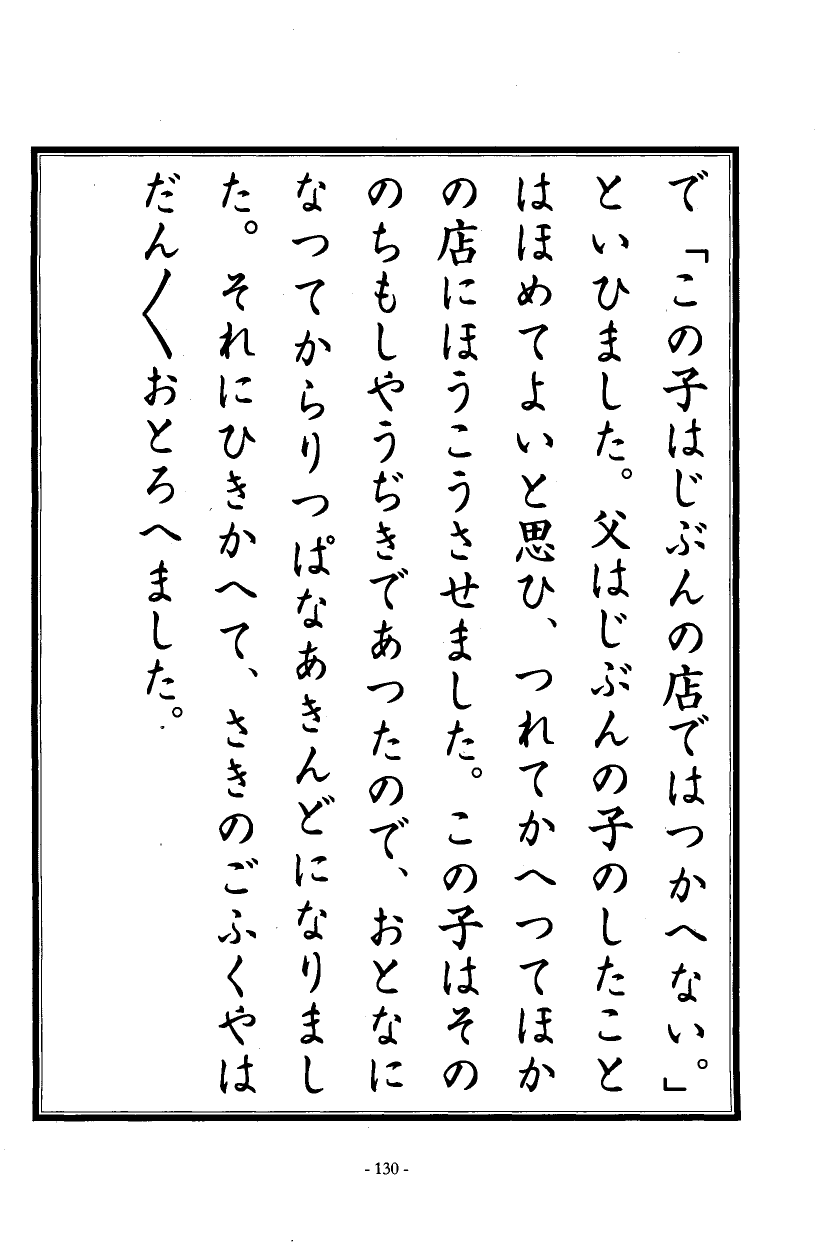 で「この子はじぶんの店ではつかへない。」
といひました。父はじぶんの子のしたこと
はほめてよいと思ひ、つれてかへつてほか
の店にほうこうさせました。この子はその
のちもしやうぢきであつたので、おとなに
なつてからりつぱなあきんどになりまし
た。それにひきかへて、さきのごふくやは
だん〱おとろへました。
- 130 -